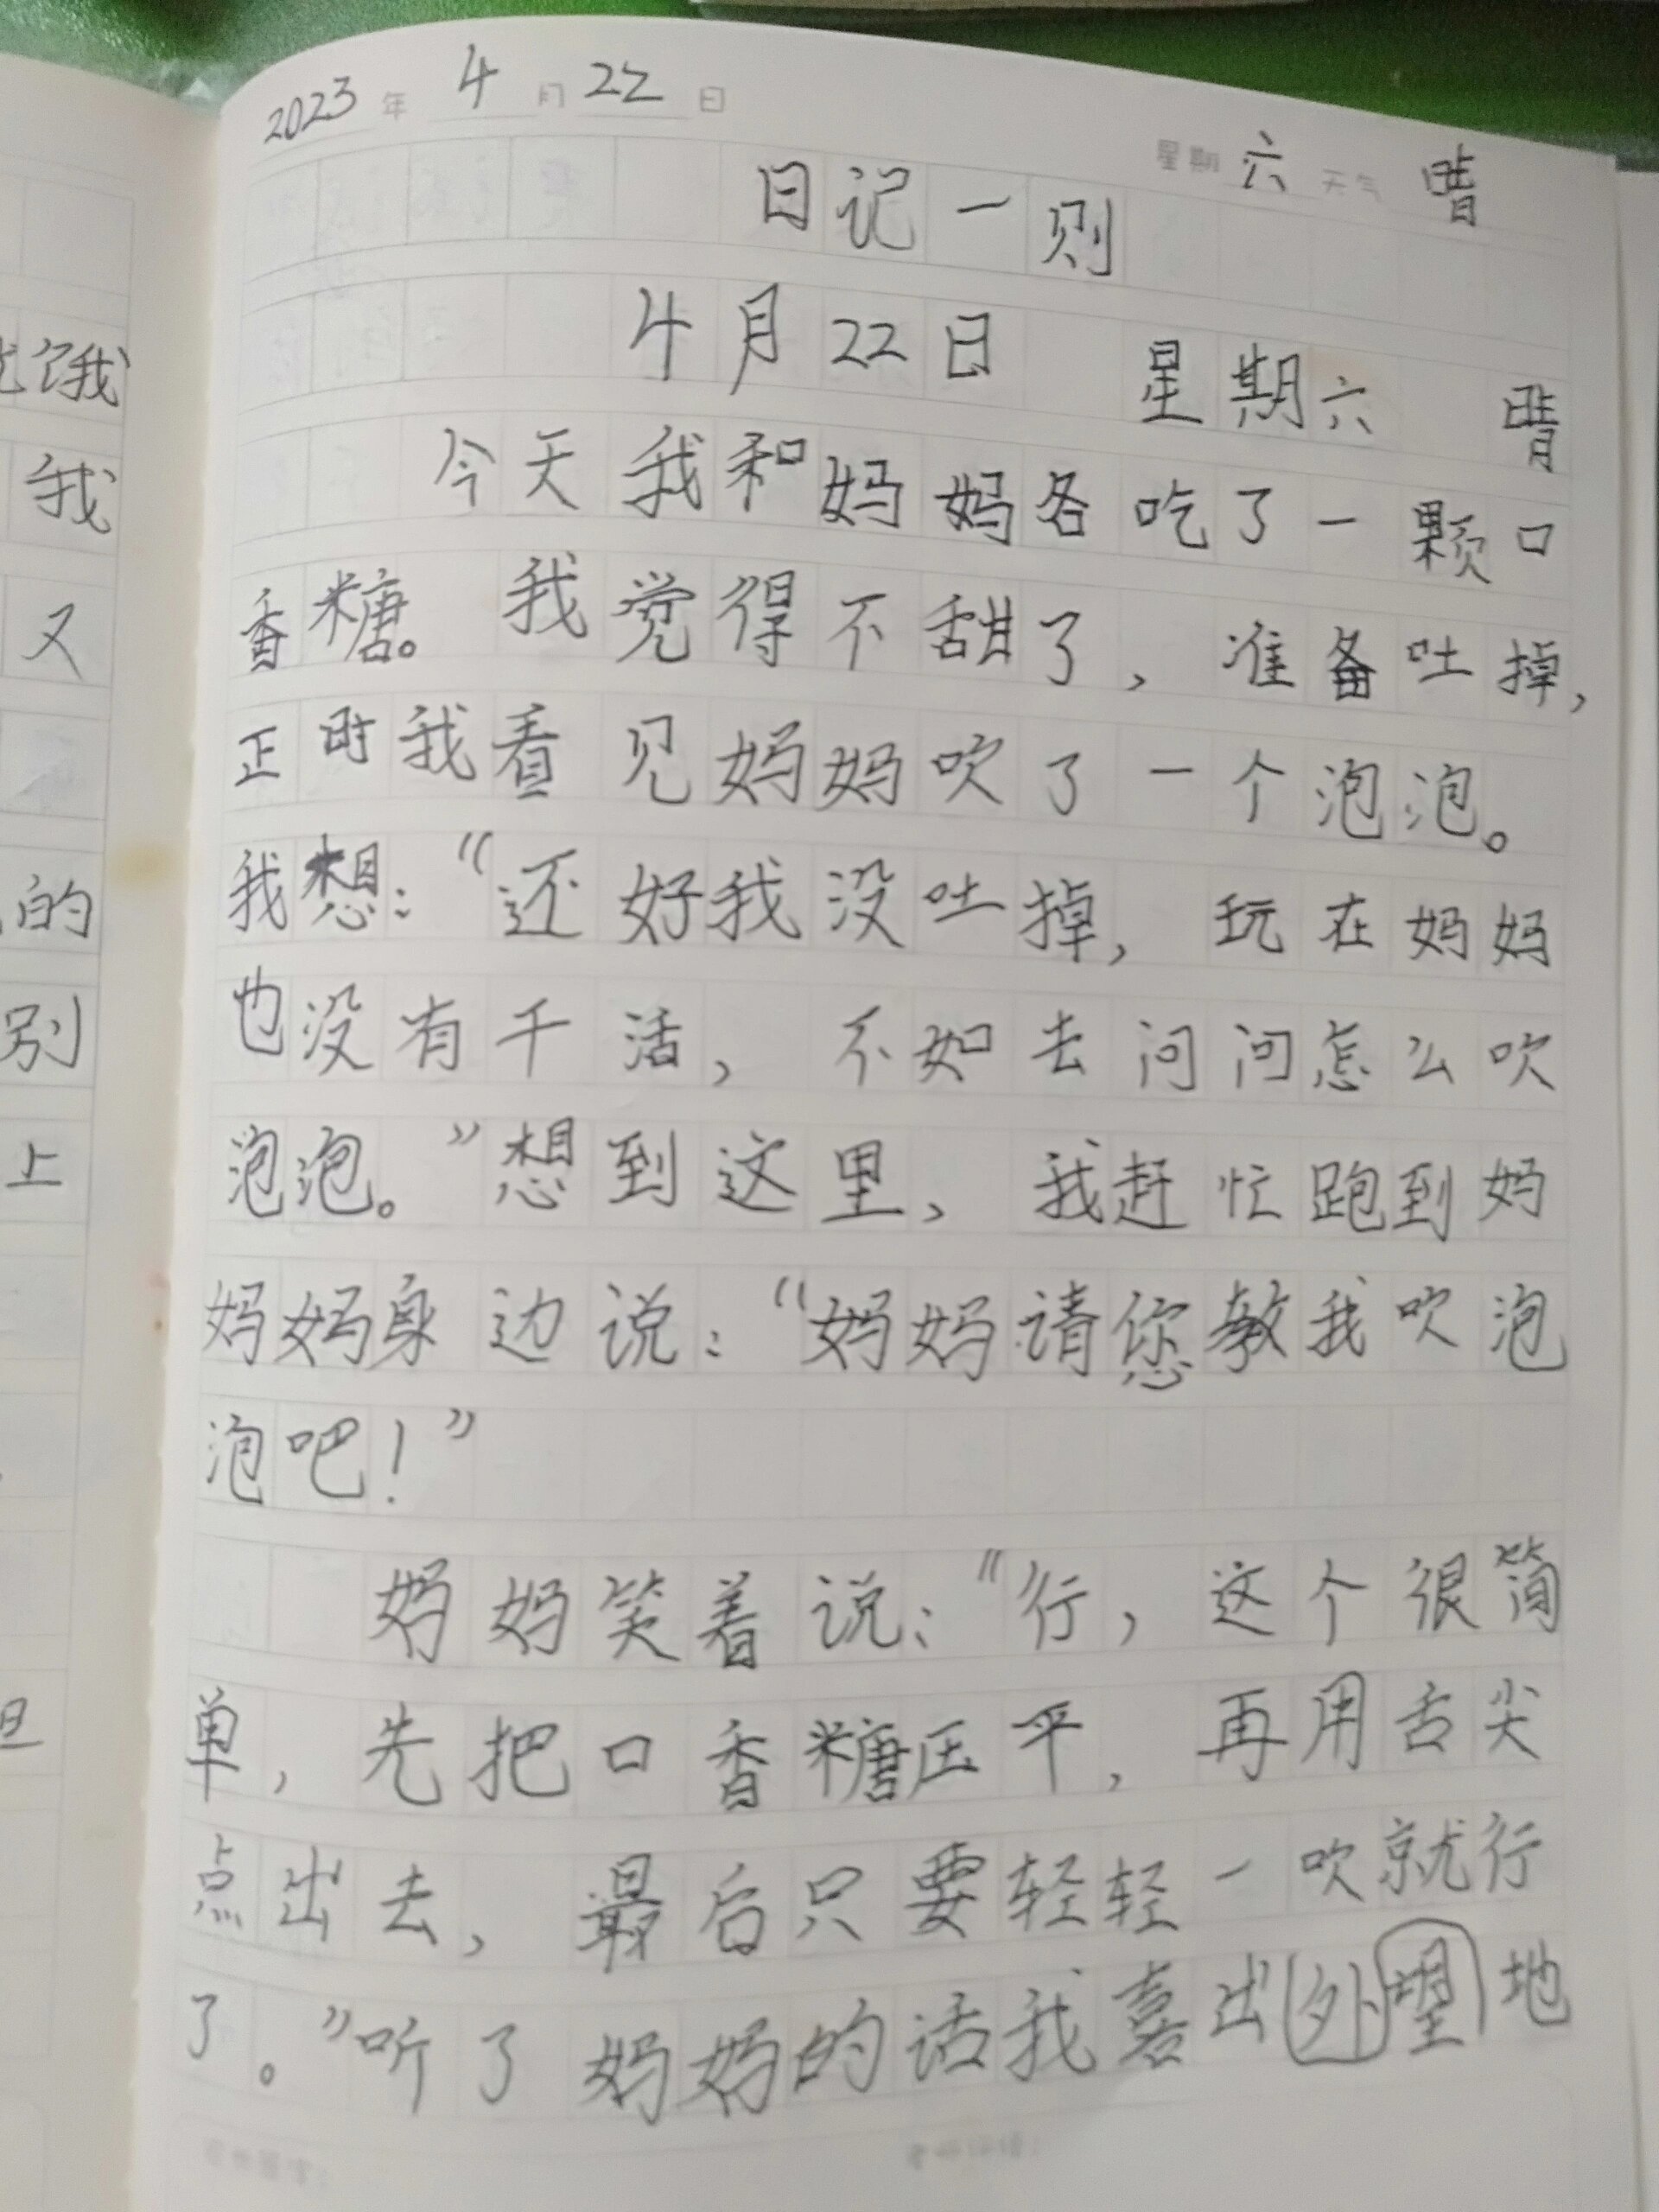 2023年 4月 22日
星期 六 天气 晴
日记一则
4月22日 星期六 晴
今天我和妈妈各吃了一颗口
香糖。我觉得不甜了，准备吐掉，
正时我看见妈妈吹了一个泡泡。
我想：“还好我没吐掉，玩在妈妈
也没有干活，不如去问问怎么吹
泡泡。”想到这里，我赶忙跑到妈
妈妈身边说：“妈妈请您教我吹泡
泡吧！”
妈妈笑着说：“行，这个很简
单，先把口香糖压平，再用舌尖
点出去，最后只要轻轻一吹就行
了。”听了妈妈的话我喜出外望地
饿
我
又
的
别
上